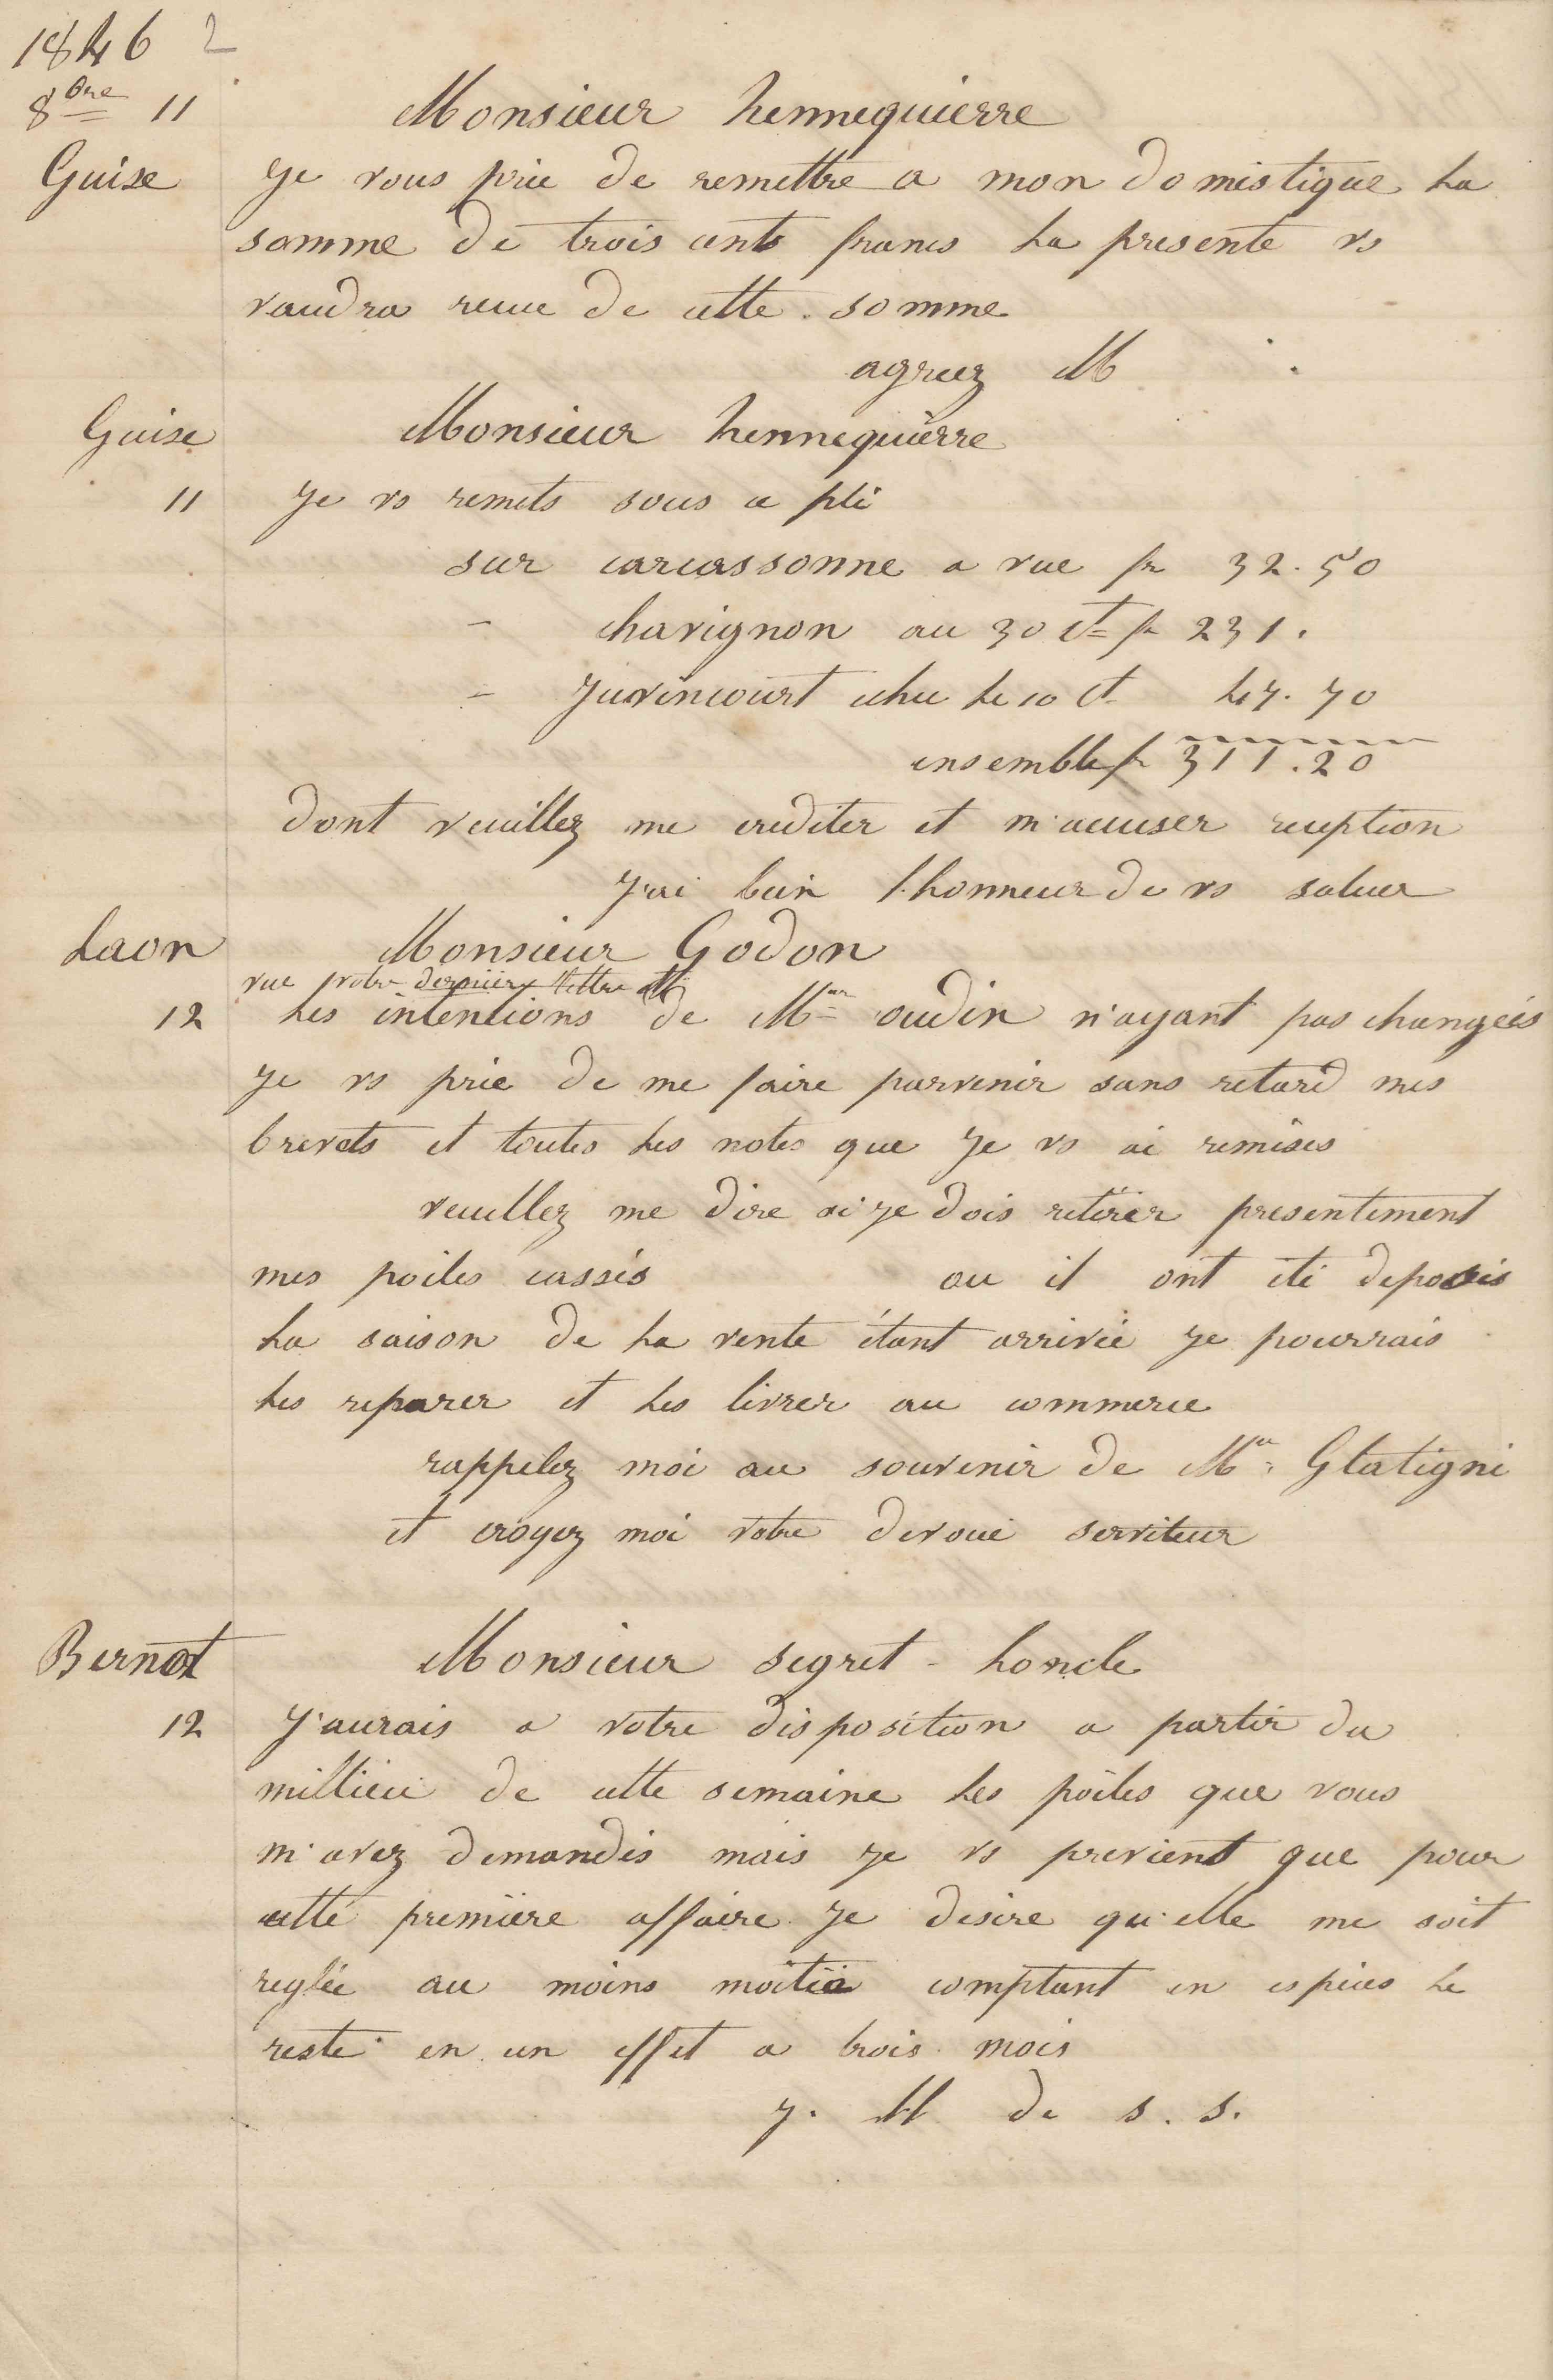 1846 2
8bre 11
Monsieur hennequierre
Guise
Je vous prie de remettre a mon domistique La
somme de trois cents francs La presente vs
vaudra recue de cette somme
agreez M
Guise
Monsieur hennequierre
11
Je vs remets sous ce pli
sur carcassonne a vue fr 32.50
- chavignon au 30 ct fr 231.
- Juvincourt echu Le 10 ct 47.70
ensemble fr 311.20
dont veuillez me crediter et m'accuser reception
J'ai bein l'honneur de vs saluer
Laon
Monsieur Godon
vue votre derniere lettre et
12
Les intentions de Mer oudin n'ayant pas changées
Je vs prie de me faire parvenir sans retard mes
brevets et toutes Les notes que Je vs ai remises
veuillez me dire si je dois retirer presentement
mes poiles cassés ou il ont été deposis
La saison de La vente étant arrivée Je pourrais
Les reparer et Les livrer au commerce
rappelez moi au souvenir de Mr Glatigni
et croyez moi votre devoué serviteur
Bernot
Monsieur segret - Loncle
12
J'aurais a votre disposition a partir du
millieu de cette semaine Les poiles que vous
m'avez demandés mais Je vs previent que pour
cette première affaire Je desire qu'elle me soit
reglée au moins moitié comptant en espèces Le
reste en un effet a trois mois
J. M de s. s.